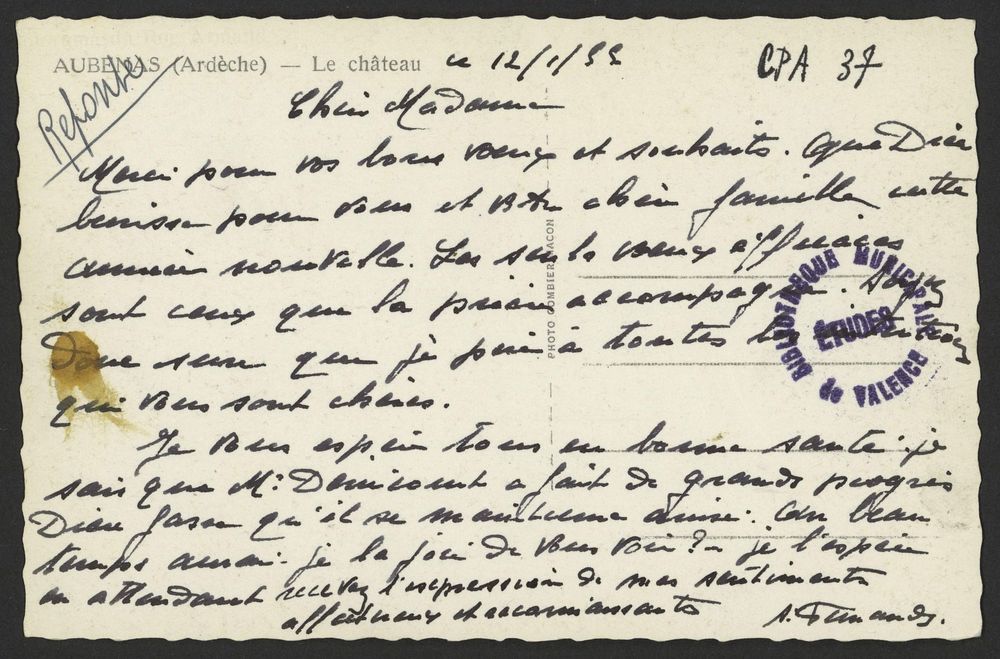 AUBENAS (Ardèche) — Le château le 12/1/55
CPA 37
Réponse
Chère Madame
Merci pour vos bons voeux et souhaits. Que Dieu
bénisse pour vous et votre chère famille cette
année nouvelle. Les seuls voeux efficaces
sont ceux que la prière accompagne. Soyez
Donc sure que je prie à toutes les intentions
qui vous sont chères.
Je vous espère tous en bonne santé. je
sais que M. a fait de grands progrès
Dieu fasse qu'il se maintienne ainsi. Au beau
temps aurai-je la joie de vous voir? je l'espère
en attendant recevez l'expression de mes sentiments
affectueux et reconnaissants
PHOTO COMBIER MACON
BIBLIOTHEQUE MUNICIPALE
ÉTUDES
de VALENCE